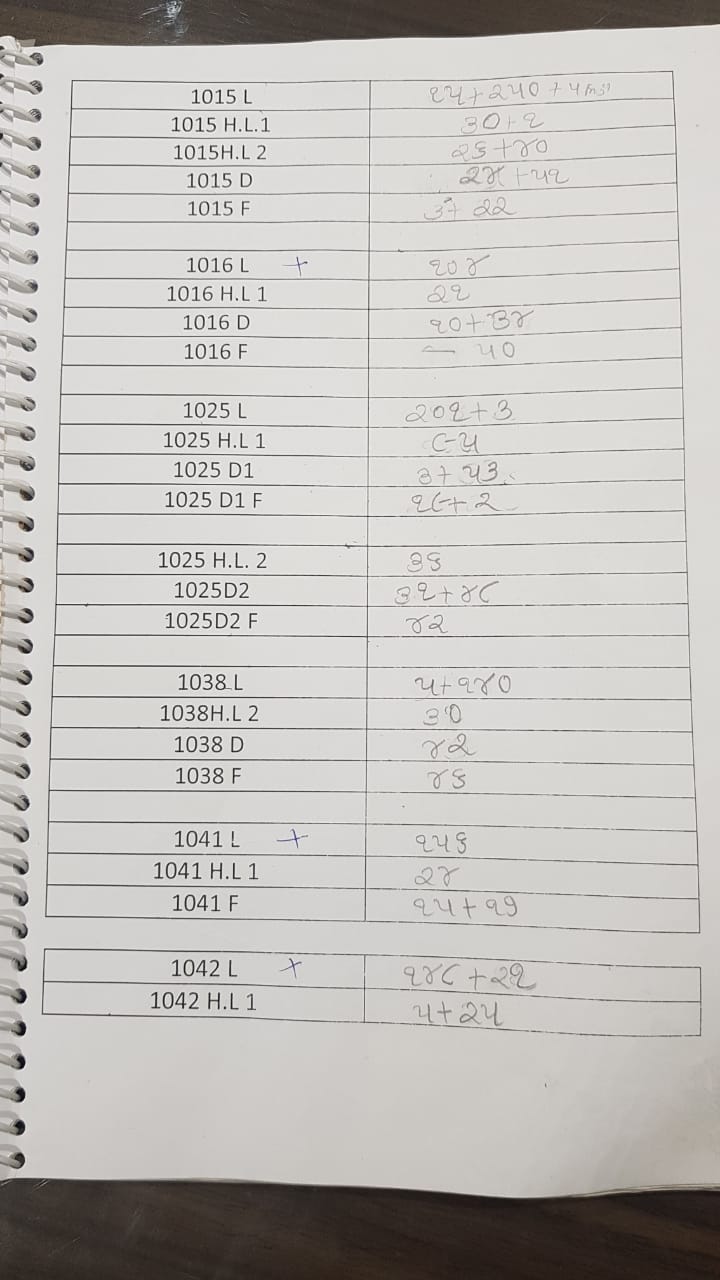 1015 L ૧૫+૨૫૦ + ૫
1015 H.L.1 ૩૦+૧
1015H.L 2 ૨૬+૪૦
1015 D ૨૪+૫૧
1015 F ૩+ ૨૨
1016 L + ૧૦૪
1016 H.L 1 ૨૧
1016 D ૧૦+૩૪
1016 F — ૫૦
1025 L ૨૦૧+૩
1025 H.L 1 ૮૫
1025 D1 ૩+ ૫૩
1025 D1 F ૧૮+૨
1025 H.L. 2 ૩૬
1025D2 ૩૧+૪૮
1025D2 F ૪૨
1038 L ૫+૧૪૦
1038H.L 2 ૩૦
1038 D ૪૨
1038 F ૪૬
1041 L + ૧૫૬
1041 H.L 1 ૨૪
1041 F ૧૫+૧૭
1042 L + ૧૪૮+૨૧
1042 H.L 1 ૫+૨૫